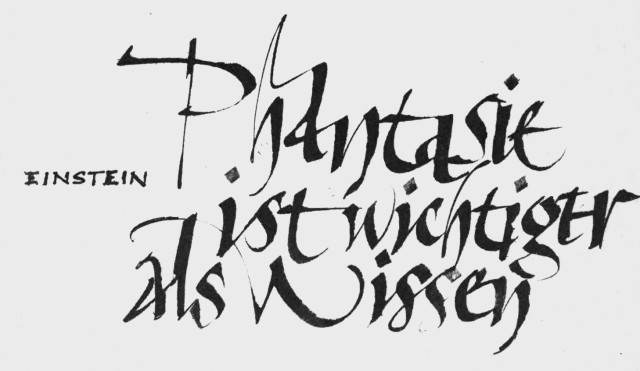 Phantasie
EINSTEIN
ist wichtiger
als Wissen